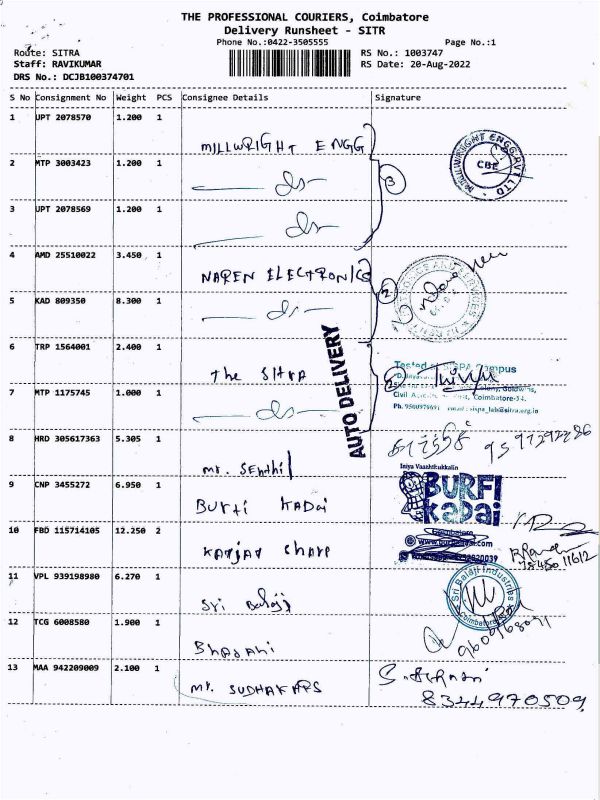 THE PROFESSIONAL COURIERS, Coimbatore
Delivery Runsheet - SITR
Phone No.:0422-3505555 Page No.:1
Route: SITRA RS No.: 1003747
Staff: RAVIKUMAR RS Date: 20-Aug-2022
DRS No.: DCJB100374701
S No Consignment No Weight PCS Consignee Details Signature
1 UPT 2078570 1.200 1
MILLWRIGHT ENGG
MILLWRIGHT ENGG PVT LTD CBE
2 MTP 3003423 1.200 1
3
3 UPT 2078569 1.200 1
4 AMD 25510022 3.450 1
NAREN ELECTRONICS
2
5 KAD 809350 8.300 1
AUTO DELIVERY
6 TRP 1564001 2.400 1
The SITRA
Tested Campus
7 MTP 1175745 1.000 1
Civil Coimbatore-14.
Ph. email : sispa_lab@sitra.org.in
8 HRD 305617363 5.305 1
9597292286
Mr. Senthil
Iniya Vaazhthukkalin
9 CNP 3455272 6.950 1
BURFI KADAI
Burfi Kadai
Coimbatore
10 FBD 115714105 12.250 2
www.burfikadai.com
11 VPL 939198980 6.270 1
Sri Balaji
Sri Balaji Industries Coimbatore
12 TCG 6008580 1.900 1
13 MAA 942209009 2.100 1
Mr. SUDHAKARS
8344970509